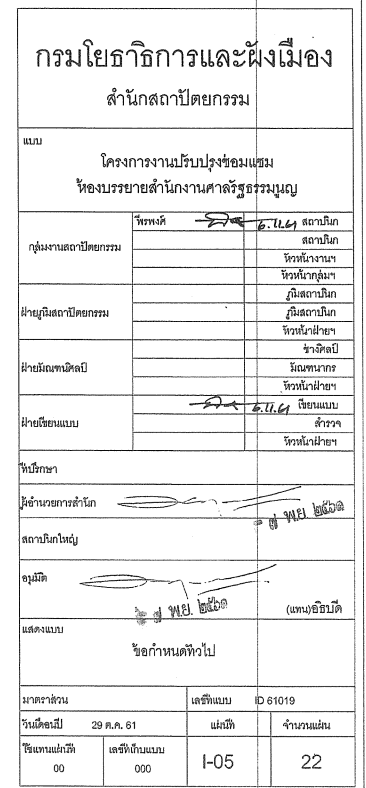 กรมโยธาธิการและผังเมือง
สำนักสถาปัตยกรรม
แบบ
โครงการงานปรับปรุงซ่อมแซม
ห้องบรรยายสำนักงานศาลรัฐธรรมนูญ
กลุ่มงานสถาปัตยกรรม
พีรพงศ์ 6.11.61 สถาปนิก
สถาปนิก
หัวหน้างานฯ
หัวหน้ากลุ่มฯ
ฝ่ายภูมิสถาปัตยกรรม
ภูมิสถาปนิก
ภูมิสถาปนิก
หัวหน้าฝ่ายฯ
ฝ่ายมัณฑนศิลป์
ช่างศิลป์
มัณฑนากร
หัวหน้าฝ่ายฯ
ฝ่ายเขียนแบบ
6.11.61 เขียนแบบ
สำรวจ
หัวหน้าฝ่ายฯ
ที่ปรึกษา
ผู้อำนวยการสำนัก
๗ พ.ย. ๒๕๖๑
สถาปนิกใหญ่
อนุมัติ
๗ พ.ย. ๒๕๖๑
(แทน)อธิบดี
แสดงแบบ
ข้อกำหนดทั่วไป
มาตราส่วน เลขที่แบบ ID 61019
วันเดือนปี 29 ต.ค. 61 แผ่นที่ จำนวนแผ่น
ใช้แทนแผ่นที่ เลขที่เก็บแบบ I-05 22
00 000